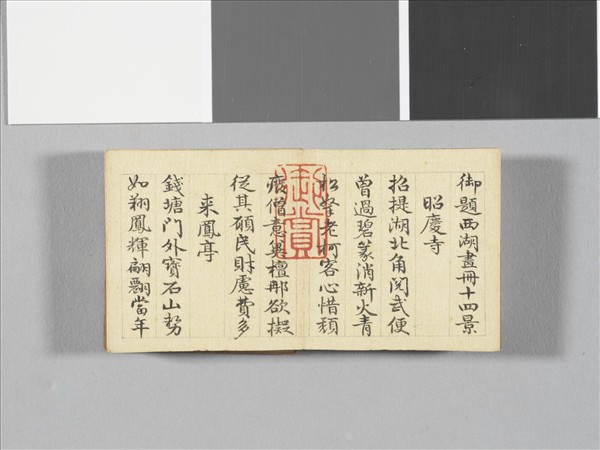 御題西湖畫冊十四景
昭慶寺
招提湖北角閱武便
曾過碧篆消新火青
松拏老柯客心惜頹
僧意冀檀那欲擬
從其願民財慮費多
來鳳亭
錢塘門外寶石山勢
如翔鳳輝翩當年
御賞